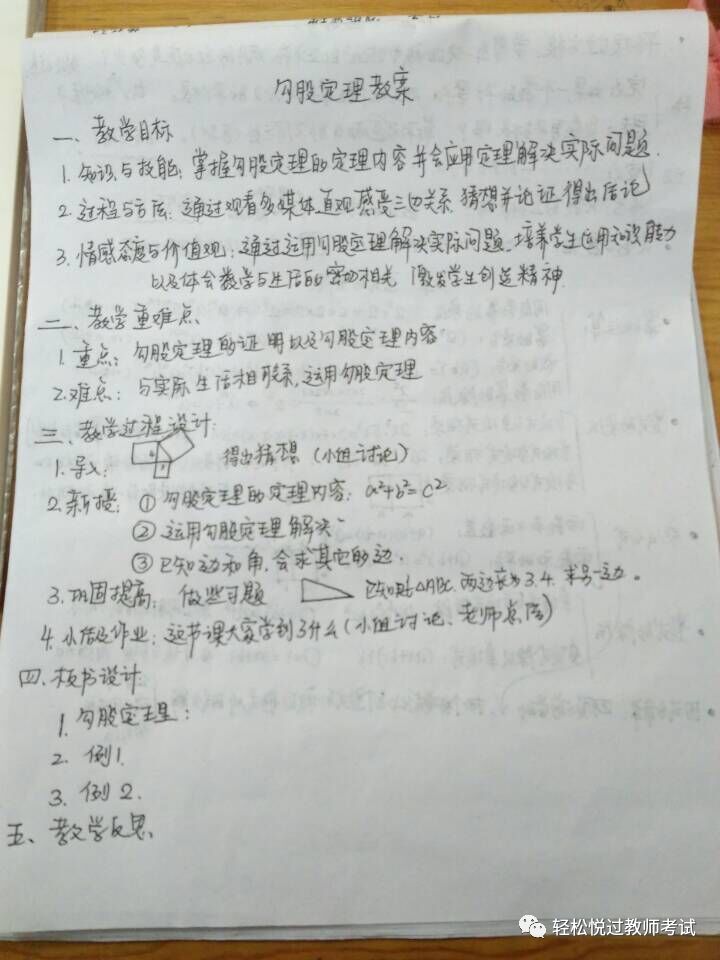 勾股定理教案
一、教学目标
1. 知识与技能：掌握勾股定理的定理内容并会应用定理解决实际问题.
2. 过程与方法：通过观看多媒体，直观感受三边关系，猜想并论证得出结论
3. 情感态度与价值观：通过运用勾股定理解决实际问题，培养学生运用知识能力
以及体会数学与生活的密切相关，激发学生创造精神.
二、教学重难点
1. 重点：勾股定理的证明以及勾股定理内容
2. 难点：与实际生活相联系，运用勾股定理
三、教学过程设计：
1. 导入： 得出猜想（小组讨论）
2. 新授：① 勾股定理的定理内容：a²+b²=c²
② 运用勾股定理解决
③ 已知边和角，会求其它的边.
3. 巩固提高：做些习题 已知Rt△ABC，两边长为3.4. 求另一边。
4. 小结及作业：这节课大家学到了什么（小组讨论、老师总结）
四、板书设计
1. 勾股定理：
2. 例1.
3. 例2.
五、教学反思、
轻松悦过教师考试